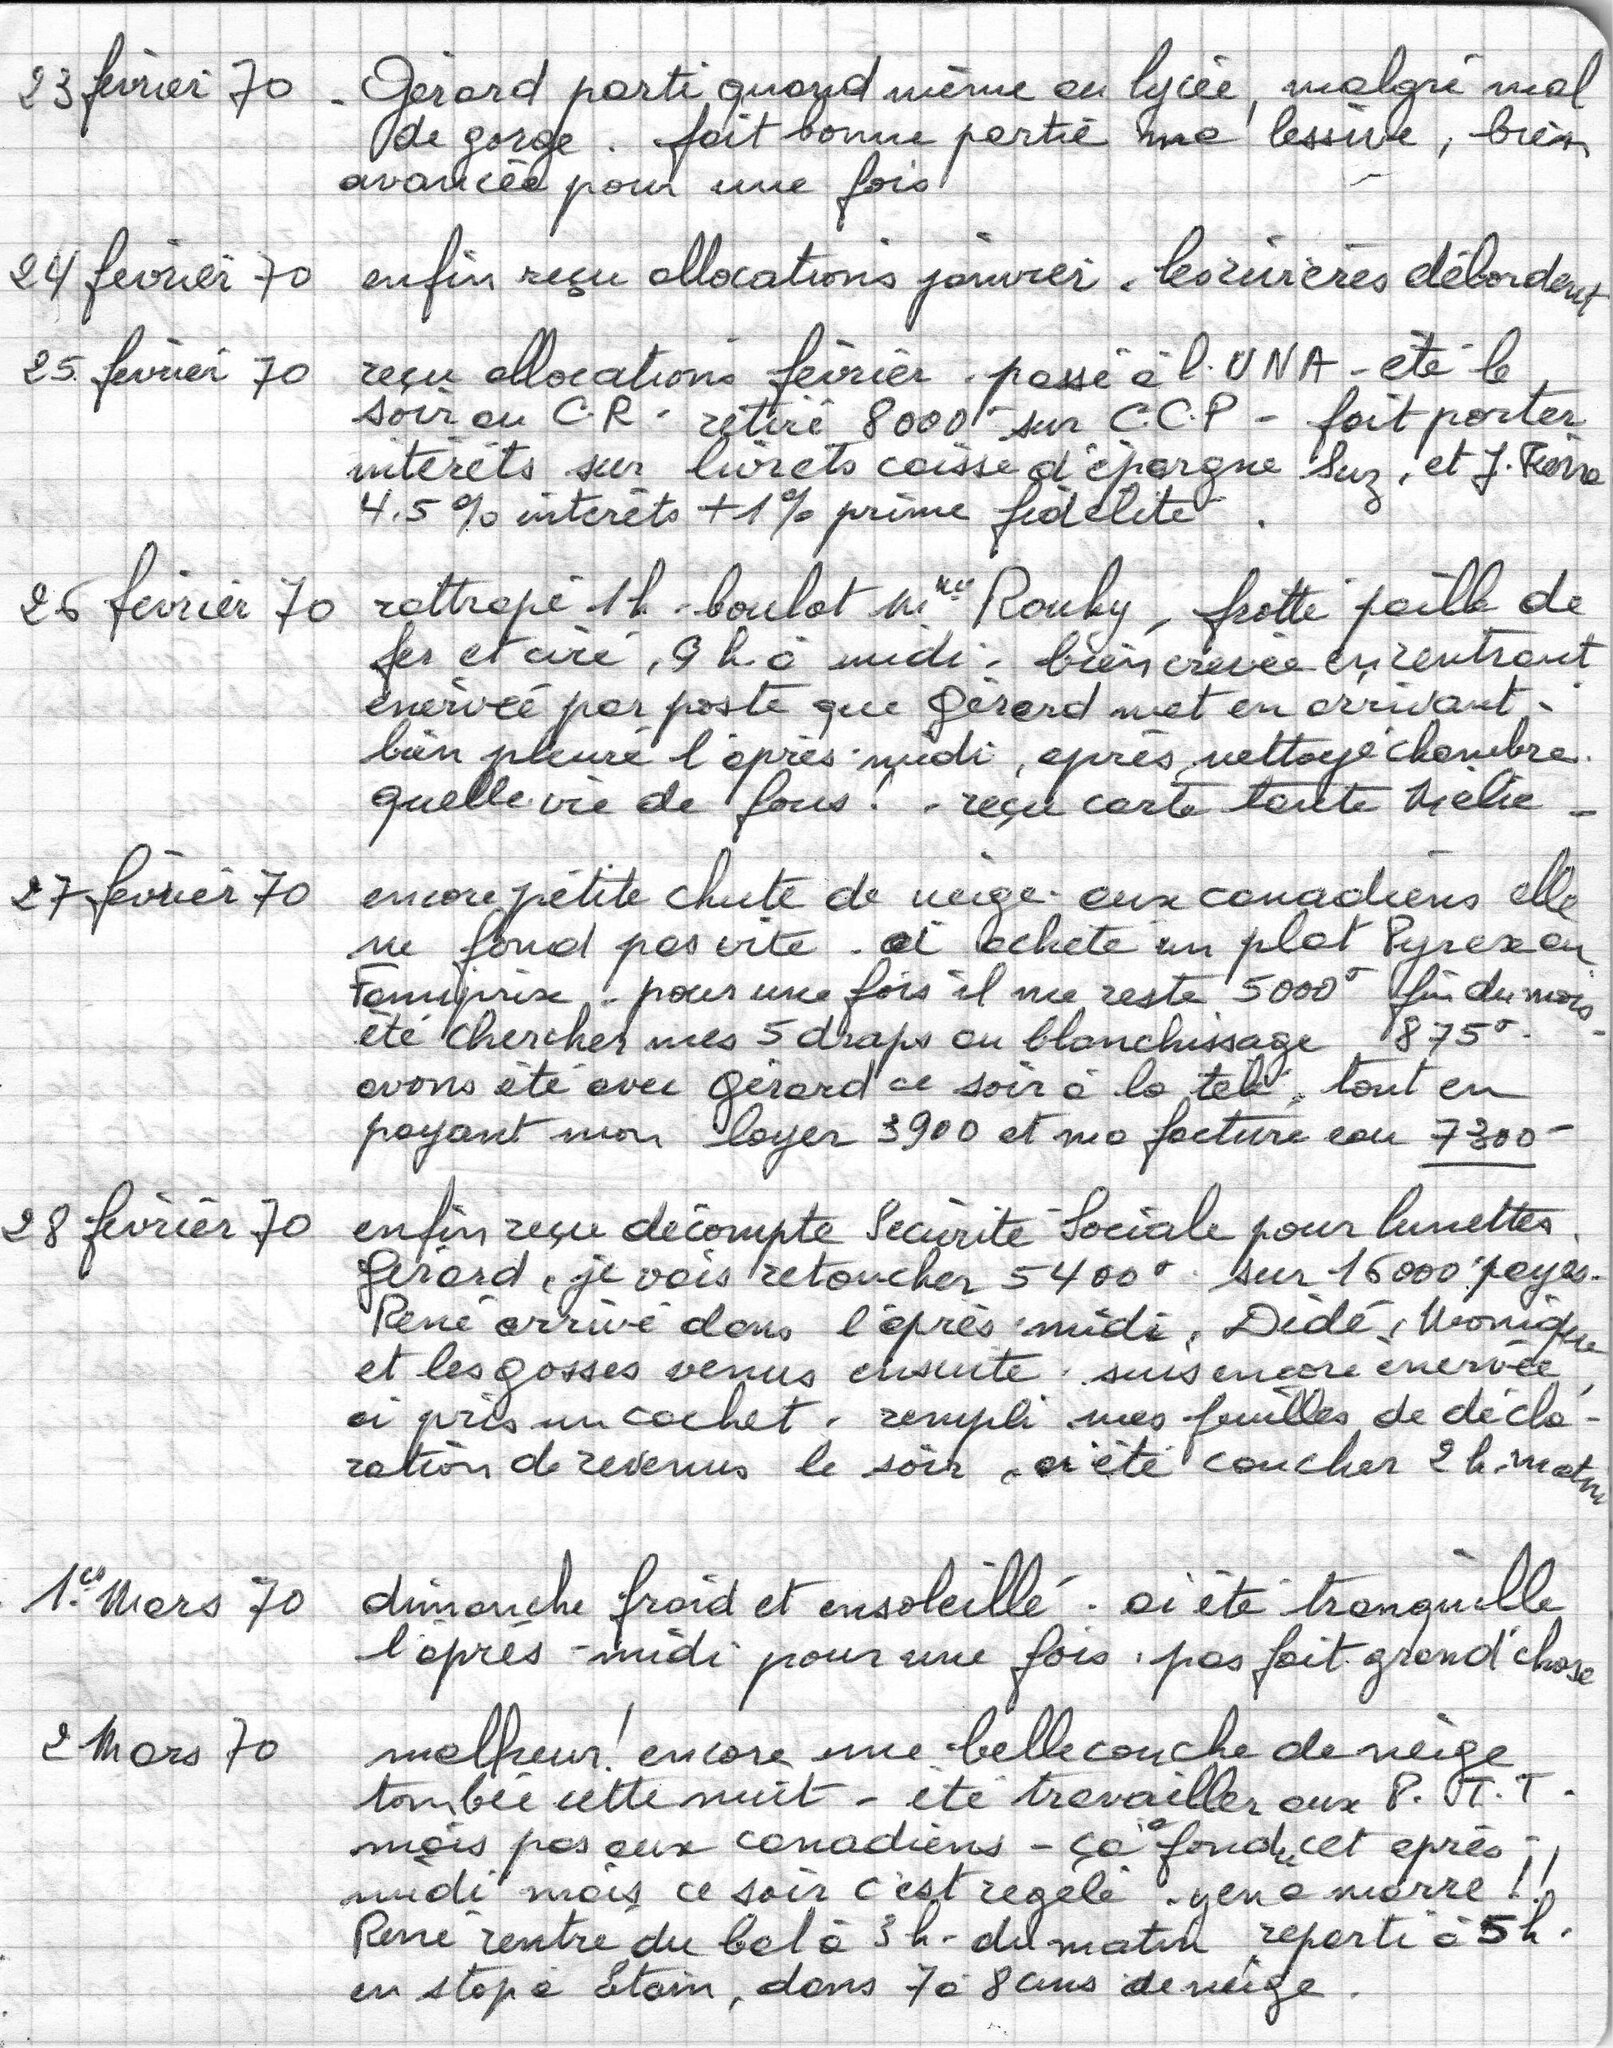 23 février 70 - Gérard parti quand même au lycée, malgré mal
de gorge. fait bonne partie ma lessive, bien
avancée pour une fois
24 février 70 enfin reçu allocations janvier. les rivières débordent
25 février 70 reçu allocations février. passé à l'UNA - été le
soir au C.R - retiré 8000 sur C.C.P - fait porter
intérêts sur livrets caisse d'épargne Suz. et J. Pierre
4.5% intérêts + 1% prime fidélité.
26 février 70 rattrapé 1h. boulot Mme Rouby, frotté paille de
fer et ciré, 9 h à midi. bien crevée en rentrant
énervée par poste que Gérard met en arrivant.
bien pleuré l'après-midi, après nettoyé chambre.
quelle vie de fous! - reçu carte tante Mélie -
27 février 70 encore petite chute de neige. aux canadiens elle
ne fond pas vite. ai acheté un plat Pyrex au
Famiprix. pour une fois il me reste 5000 fin du mois -
été chercher mes 5 draps au blanchissage 875.
avons été avec Gérard ce soir à la télé, tout en
payant mon loyer 3900 et ma facture eau 7300 -
28 février 70 enfin reçu décompte Sécurité Sociale pour lunettes
Gérard, je vais retoucher 5400 sur 16000 payés.
René arrivé dans l'après-midi, Dédé, Monique
et les gosses venus ensuite. suis encore énervée,
ai pris un cachet. rempli mes feuilles de décla-
ration de revenus le soir, ai été coucher 2 h. matin
1er Mars 70 dimanche froid et ensoleillé. ai été tranquille
l'après-midi pour une fois. pas fait grand'chose
2 Mars 70 malheur! encore une belle couche de neige
tombée cette nuit - été travailler aux P.T.T.
mais pas aux canadiens - ça a fondu cet après-
midi mais ce soir c'est regelé. y en a marre!!
René rentré du bal à 3 h. du matin reparti à 5h.
en stop à Etain, dans 7 à 8 cms de neige.